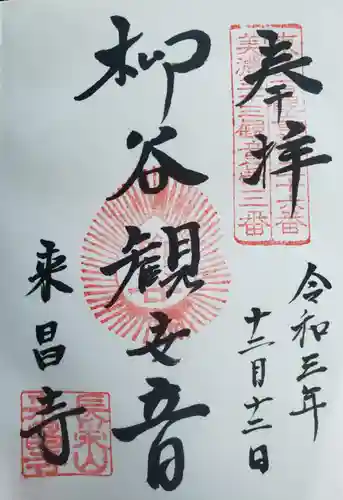 奉拝
美濃三十三観音第三番
柳谷観世音
令和三年
十二月十二日
来昌寺